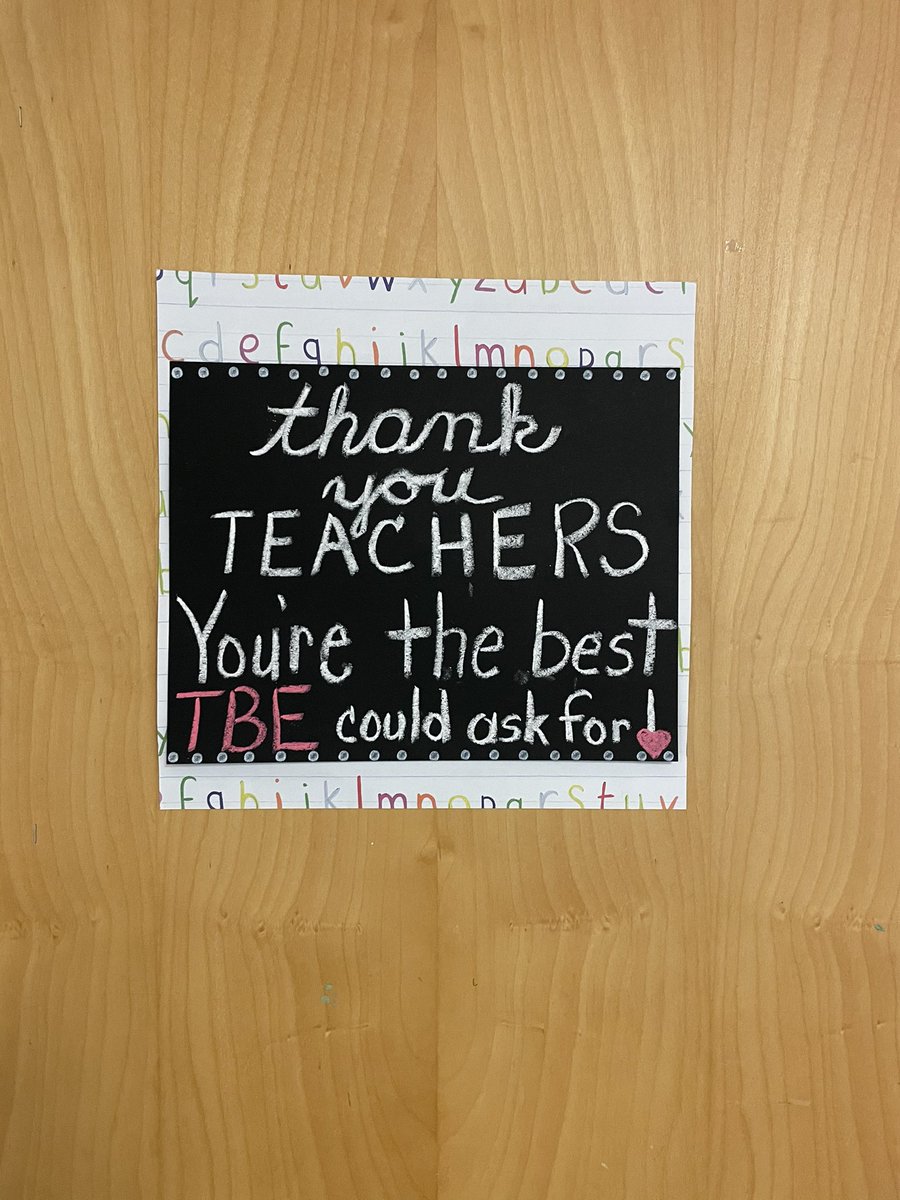 qrstuvwxyzabcde
cdefghijklmnopqrs
thank
you
TEACHERS
You're the best
TBE could ask for!
fghijklmnopqrstuv